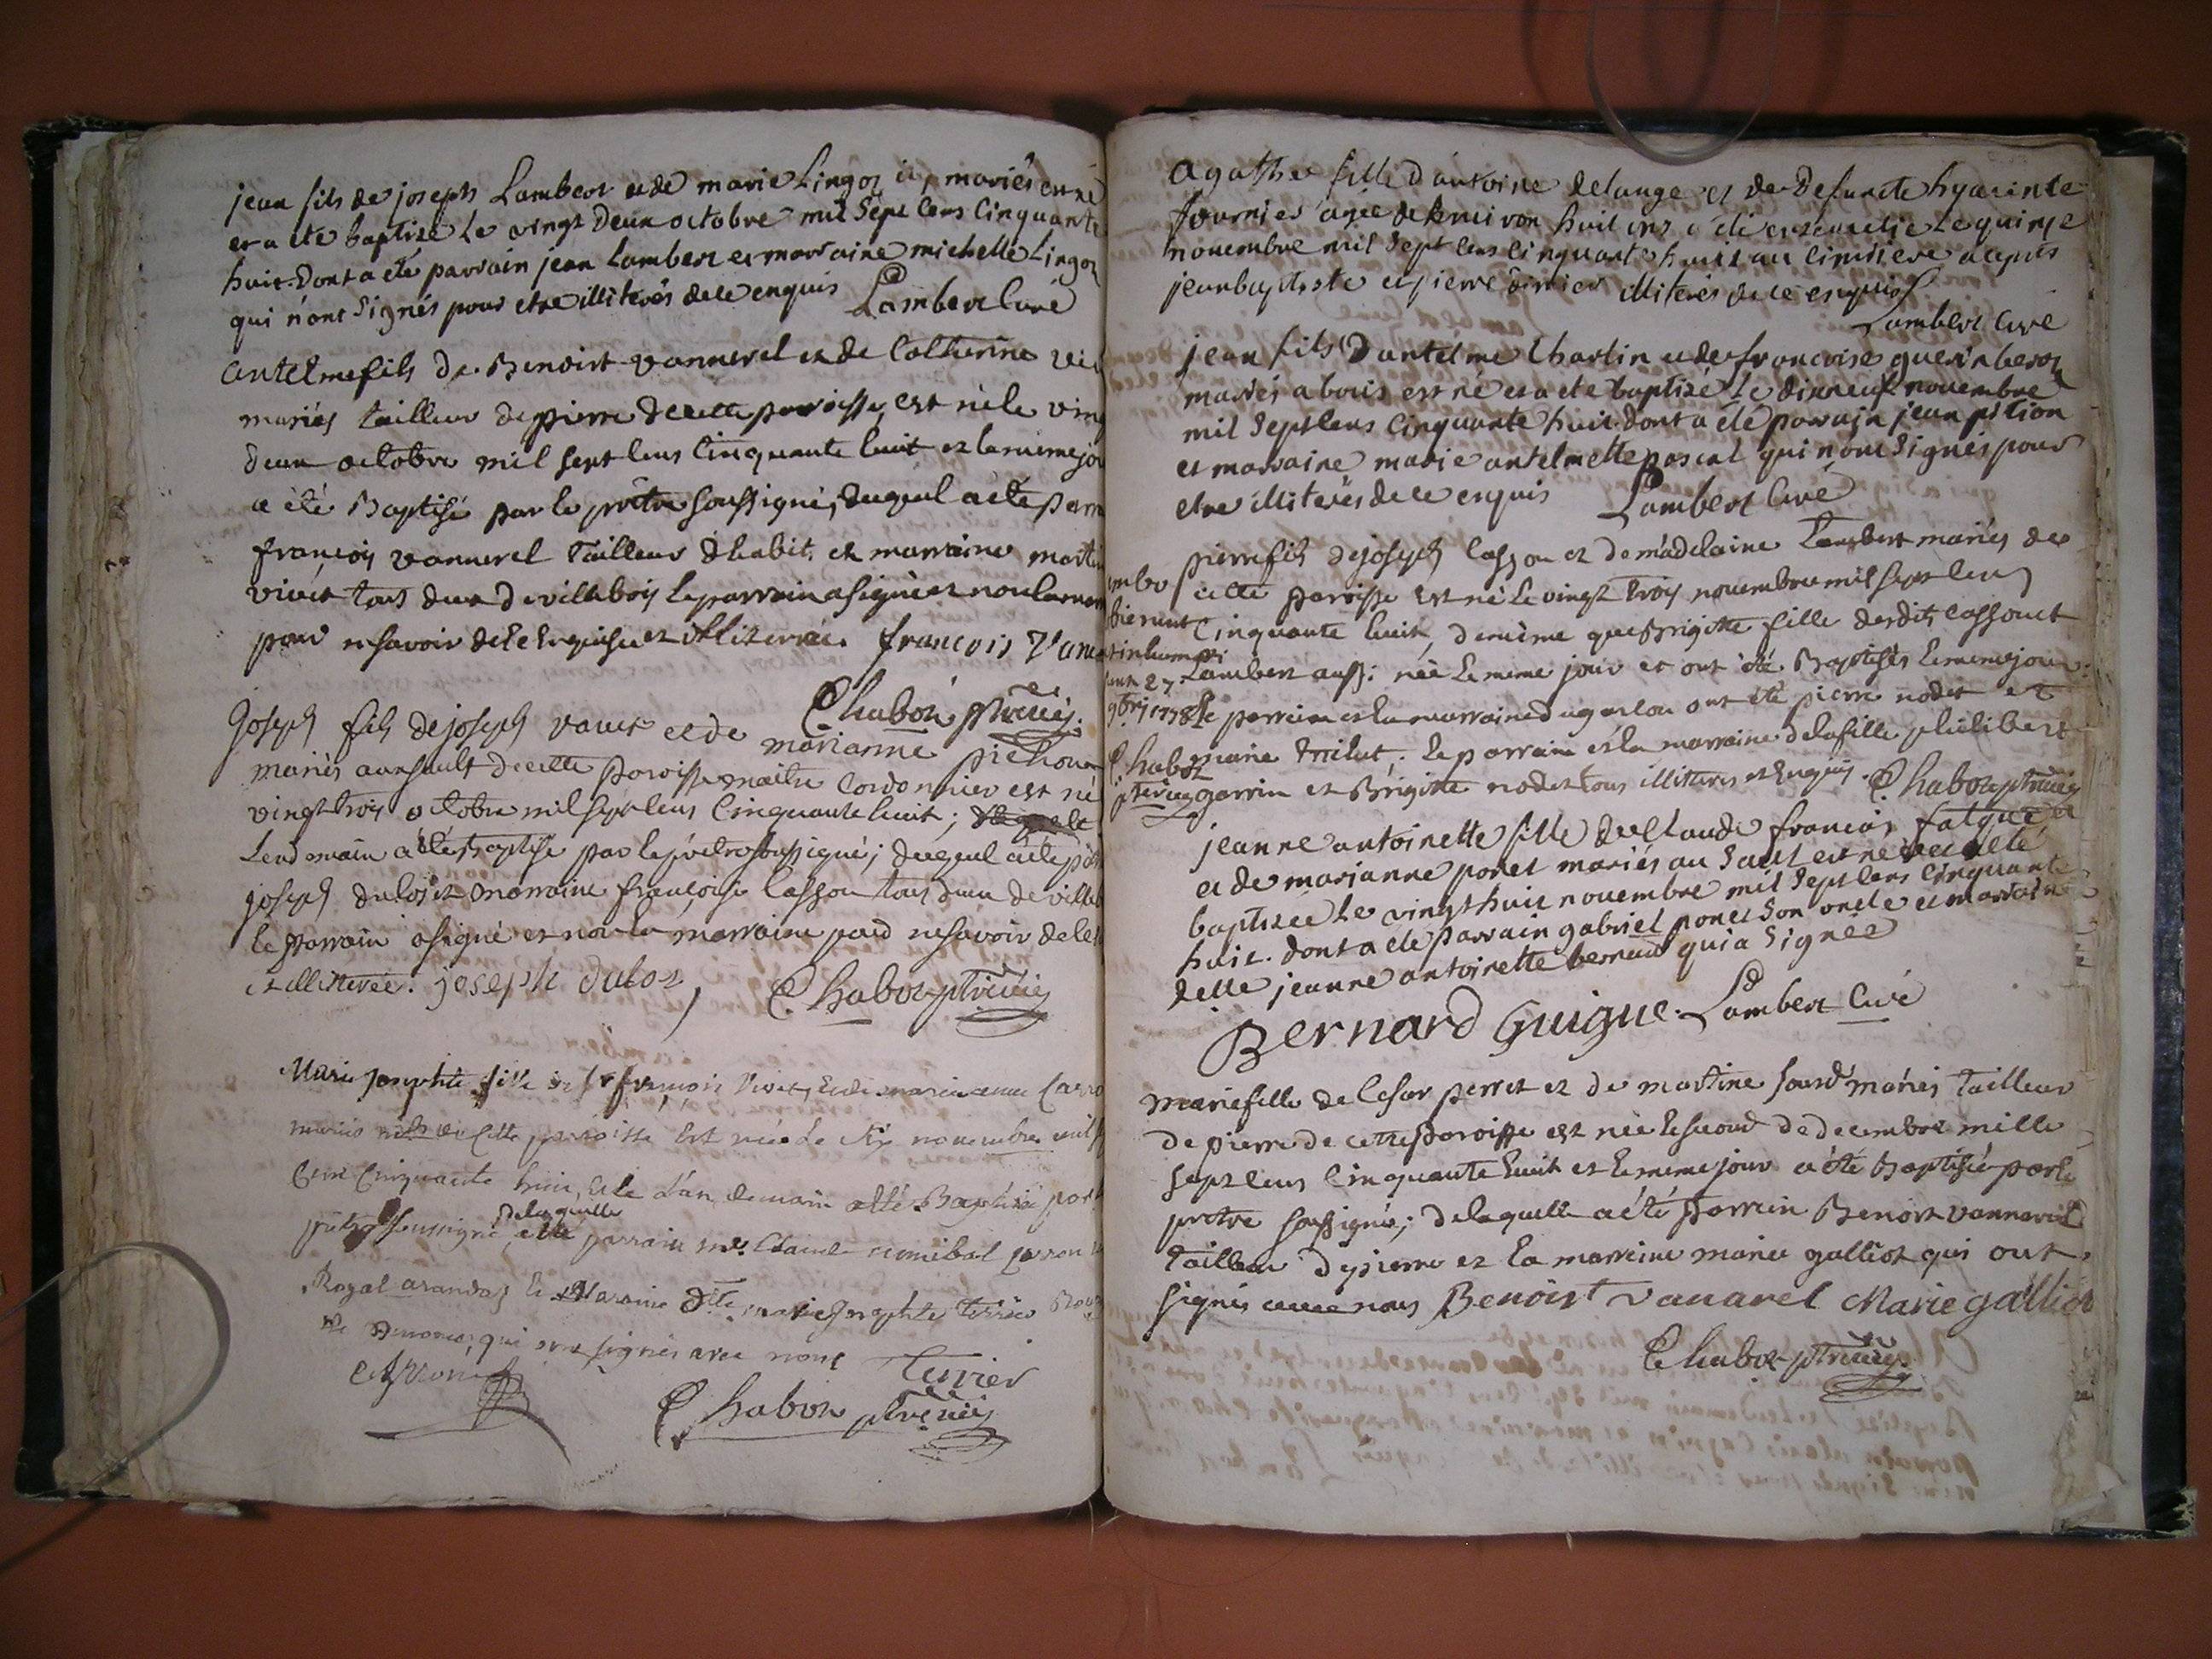 jean fils de joseph Lambert et de marie Lingot icy mariés est né
et a eté baptizé le vingt deux octobre mil sept cens cinquante
huit. dont a eté parrain jean Lambert et marraine michelle Lingot
qui n'ont signés pour etre illiterés de ce enquis Lambert curé
antelme fils de Benoist vannerel et de Catherine
mariés tailleur de pierre de cette paroisse, est né le ving
deux octobre mil sept cens cinquante huit et le meme jou
a été Baptisé par le prêtre soussigné, duquel a eté parra
françois vannerel Tailleur d'habit. et marraine marti
vivet tous deux de villebois le parrain a signé et non la marr
pour ne savoir de ce enquise et illiterrée. francois Vana
Chabot ptre vic.
joseph fils de joseph et de marianne
mariés au sault de cette paroisse maitre Cordonnier est né
vingt trois octobre mil sept cens cinquante huit;
Lendemain a été baptisé par le prêtre soussigné; duquel a été par
joseph dubos et marraine françoise Casson tous deux de villeb
le parrain a signé et non la marraine pour ne savoir de ce
et illiterée. joseph dubos, Chabot ptre vic
Marie josephte fille de Sr françois Vivet, et de marie anne
mariés de cette parroisse Est née le six novembre mil
Cent Cinquante huit, et le l'an demain a été Baptisée par
prêtre soussigné, delaquelle a été parrain me. Claude annibal
Royal arandas et Maraine dlle. marie josephte terrier
qui ont signés avec nous Terrier
Chabot ptre vic
agathe fille d'antoine delange et de defuncte hyacinte
fournier agée denviron huit ans a été ensevelie le quinze
novembre mil sept cens cinquante huit au cimitiere acepts
jean baptiste et pierre illiterés de ce enquis
Lambert curé
jean fils d'antelme Charlin et de francoise guerin beros
mariés a bouis est né et a eté baptizé le dixneuf novembre
mil sept cens cinquante huit. dont a été parrain jean pition
et marraine marie antelmette pascal qui n'ont signés pour
etre illiterés de ce enquis Lambert curé
pierre fils de joseph Casson et de madelaine Lambert mariés de
cette paroisse est né le vingt trois novembre mil sept cens
cinquante huit, de même que Brigitte fille desdits casson et
Lambert aussi née le meme jour et ont été Baptisés le meme jour.
le parrain et la marraine du garcon ont été pierre nodet et
marie trilut; le parrain et la marraine de la fille philibert
garrin et Brigitte nodet tous illitterés et Enquis. Chabot ptre vic
27
9bris 1758
Chabot
ptre vic
jeanne antoinette fille de Claude francois falque
et de marianne ponet mariés au Sault est née et a eté
baptizée le vingt huit novembre mil sept cens cinquante
huit. dont a eté parrain gabriel ponet son oncle et marraine
delle jeanne antoinette bernard qui a signée
Bernard Guigue. Lambert curé
marie fille de Cesar perret et de martine sourd mariés tailleur
de pierre de cette paroisse est née le second de decembre mille
sept cens cinquante huit et le meme jour a été Baptisée par le
prêtre soussigné; delaquelle a été parrain Benoist vannarel
tailleur de pierre et la marraine marie galliot qui ont
signés avec nous Benoist vanarel Marie galliot
Chabot ptre vic.